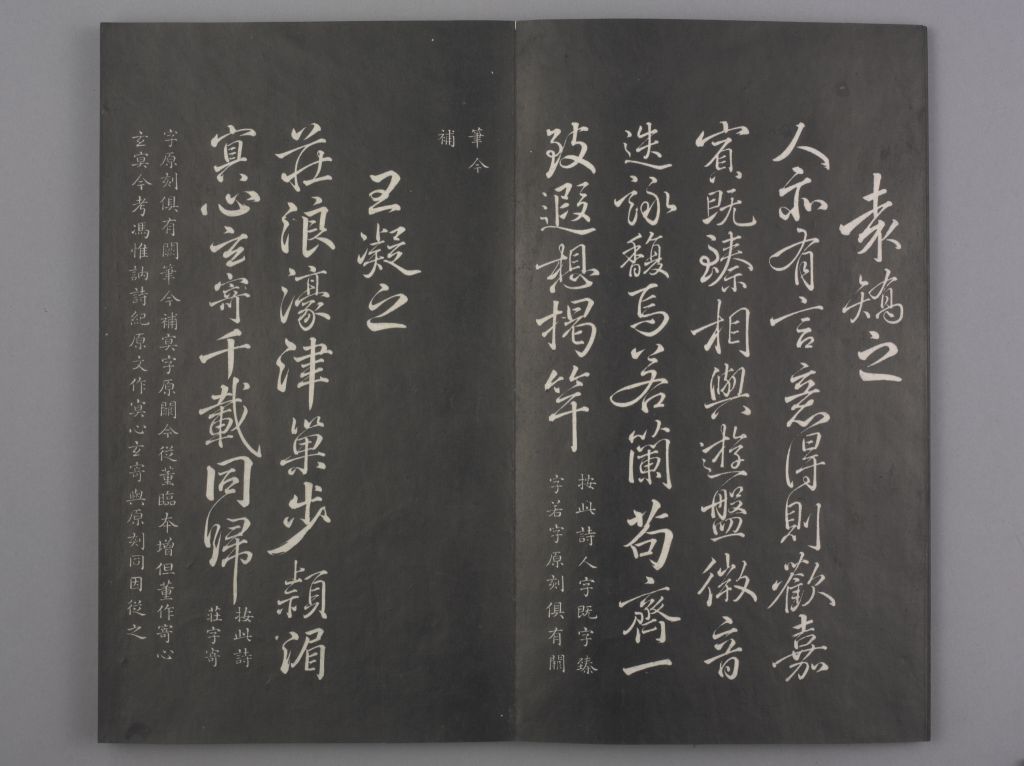 袁矯之
人亦有言意得則歡嘉
賓既臻相與遊盤微音
迭詠馥焉若蘭苟齊一
致遐想揭竿
按此詩人字既字臻
字若字原刻俱有闕
筆今
補
王凝之
莊浪濠津巢步潁湄
冥心玄寄千載同歸
按此詩
莊字寄
字原刻俱有闕筆今補冥字原闕今從董臨本增但董作寄心
玄冥今考馮惟訥詩紀原文作冥心玄寄與原刻同因從之